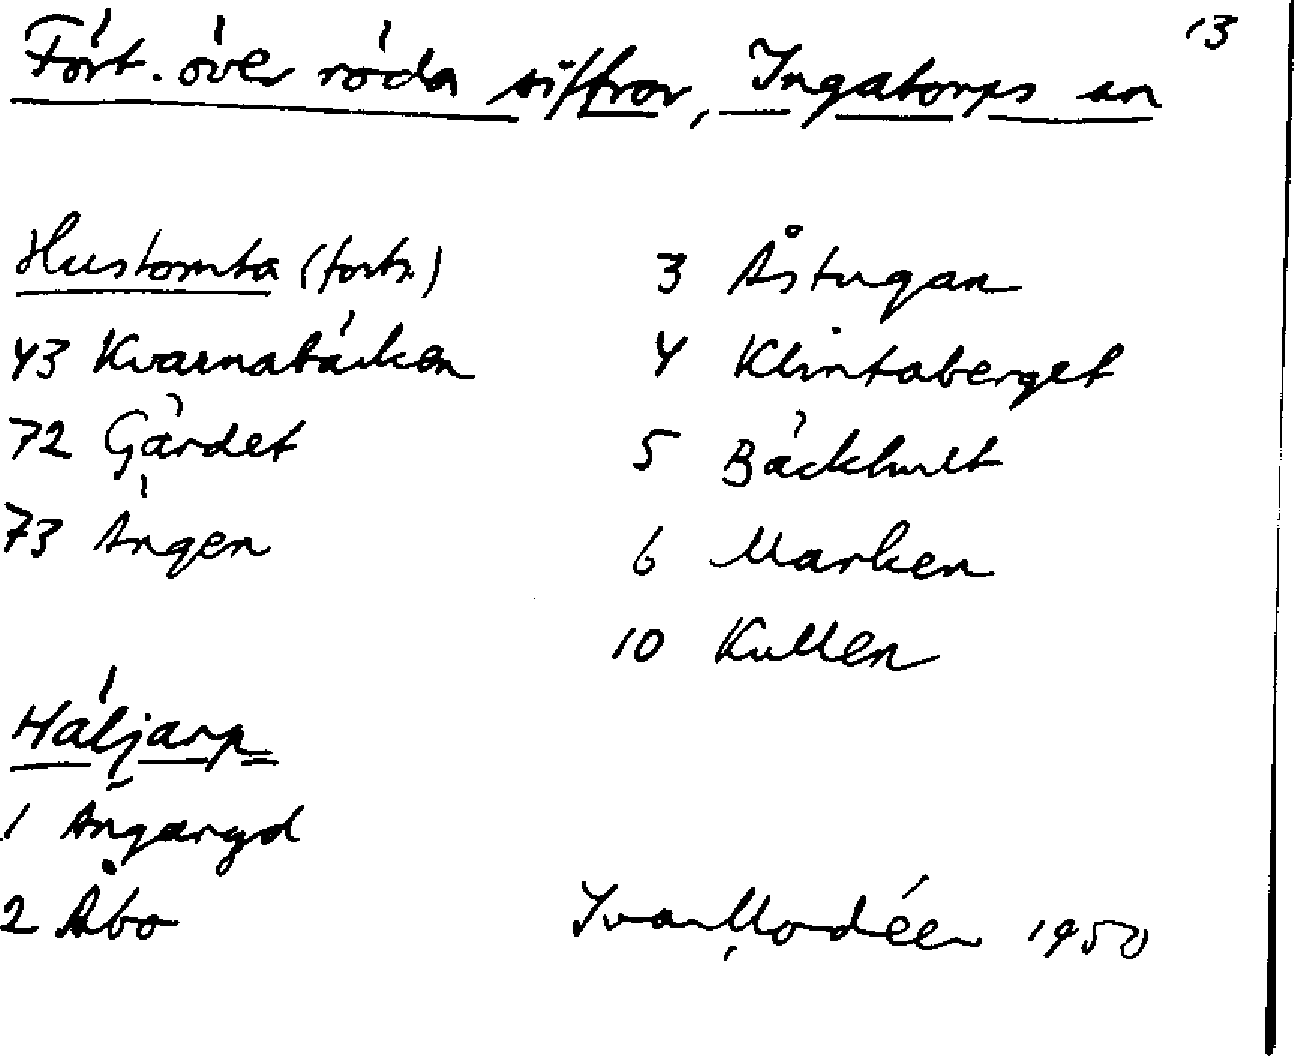 13
Fört. över röda siffror, Ingatorps sn
Hustomta (forts.)
43 Kvarnabäcken
72 Gärdet
73 Ängen
Häljarp
1 Ängaryd
2 Åbo
3 Åstugan
4 Klintaberget
5 Bäckhult
6 Marken
10 Kullen
Ivar Modéer 1950